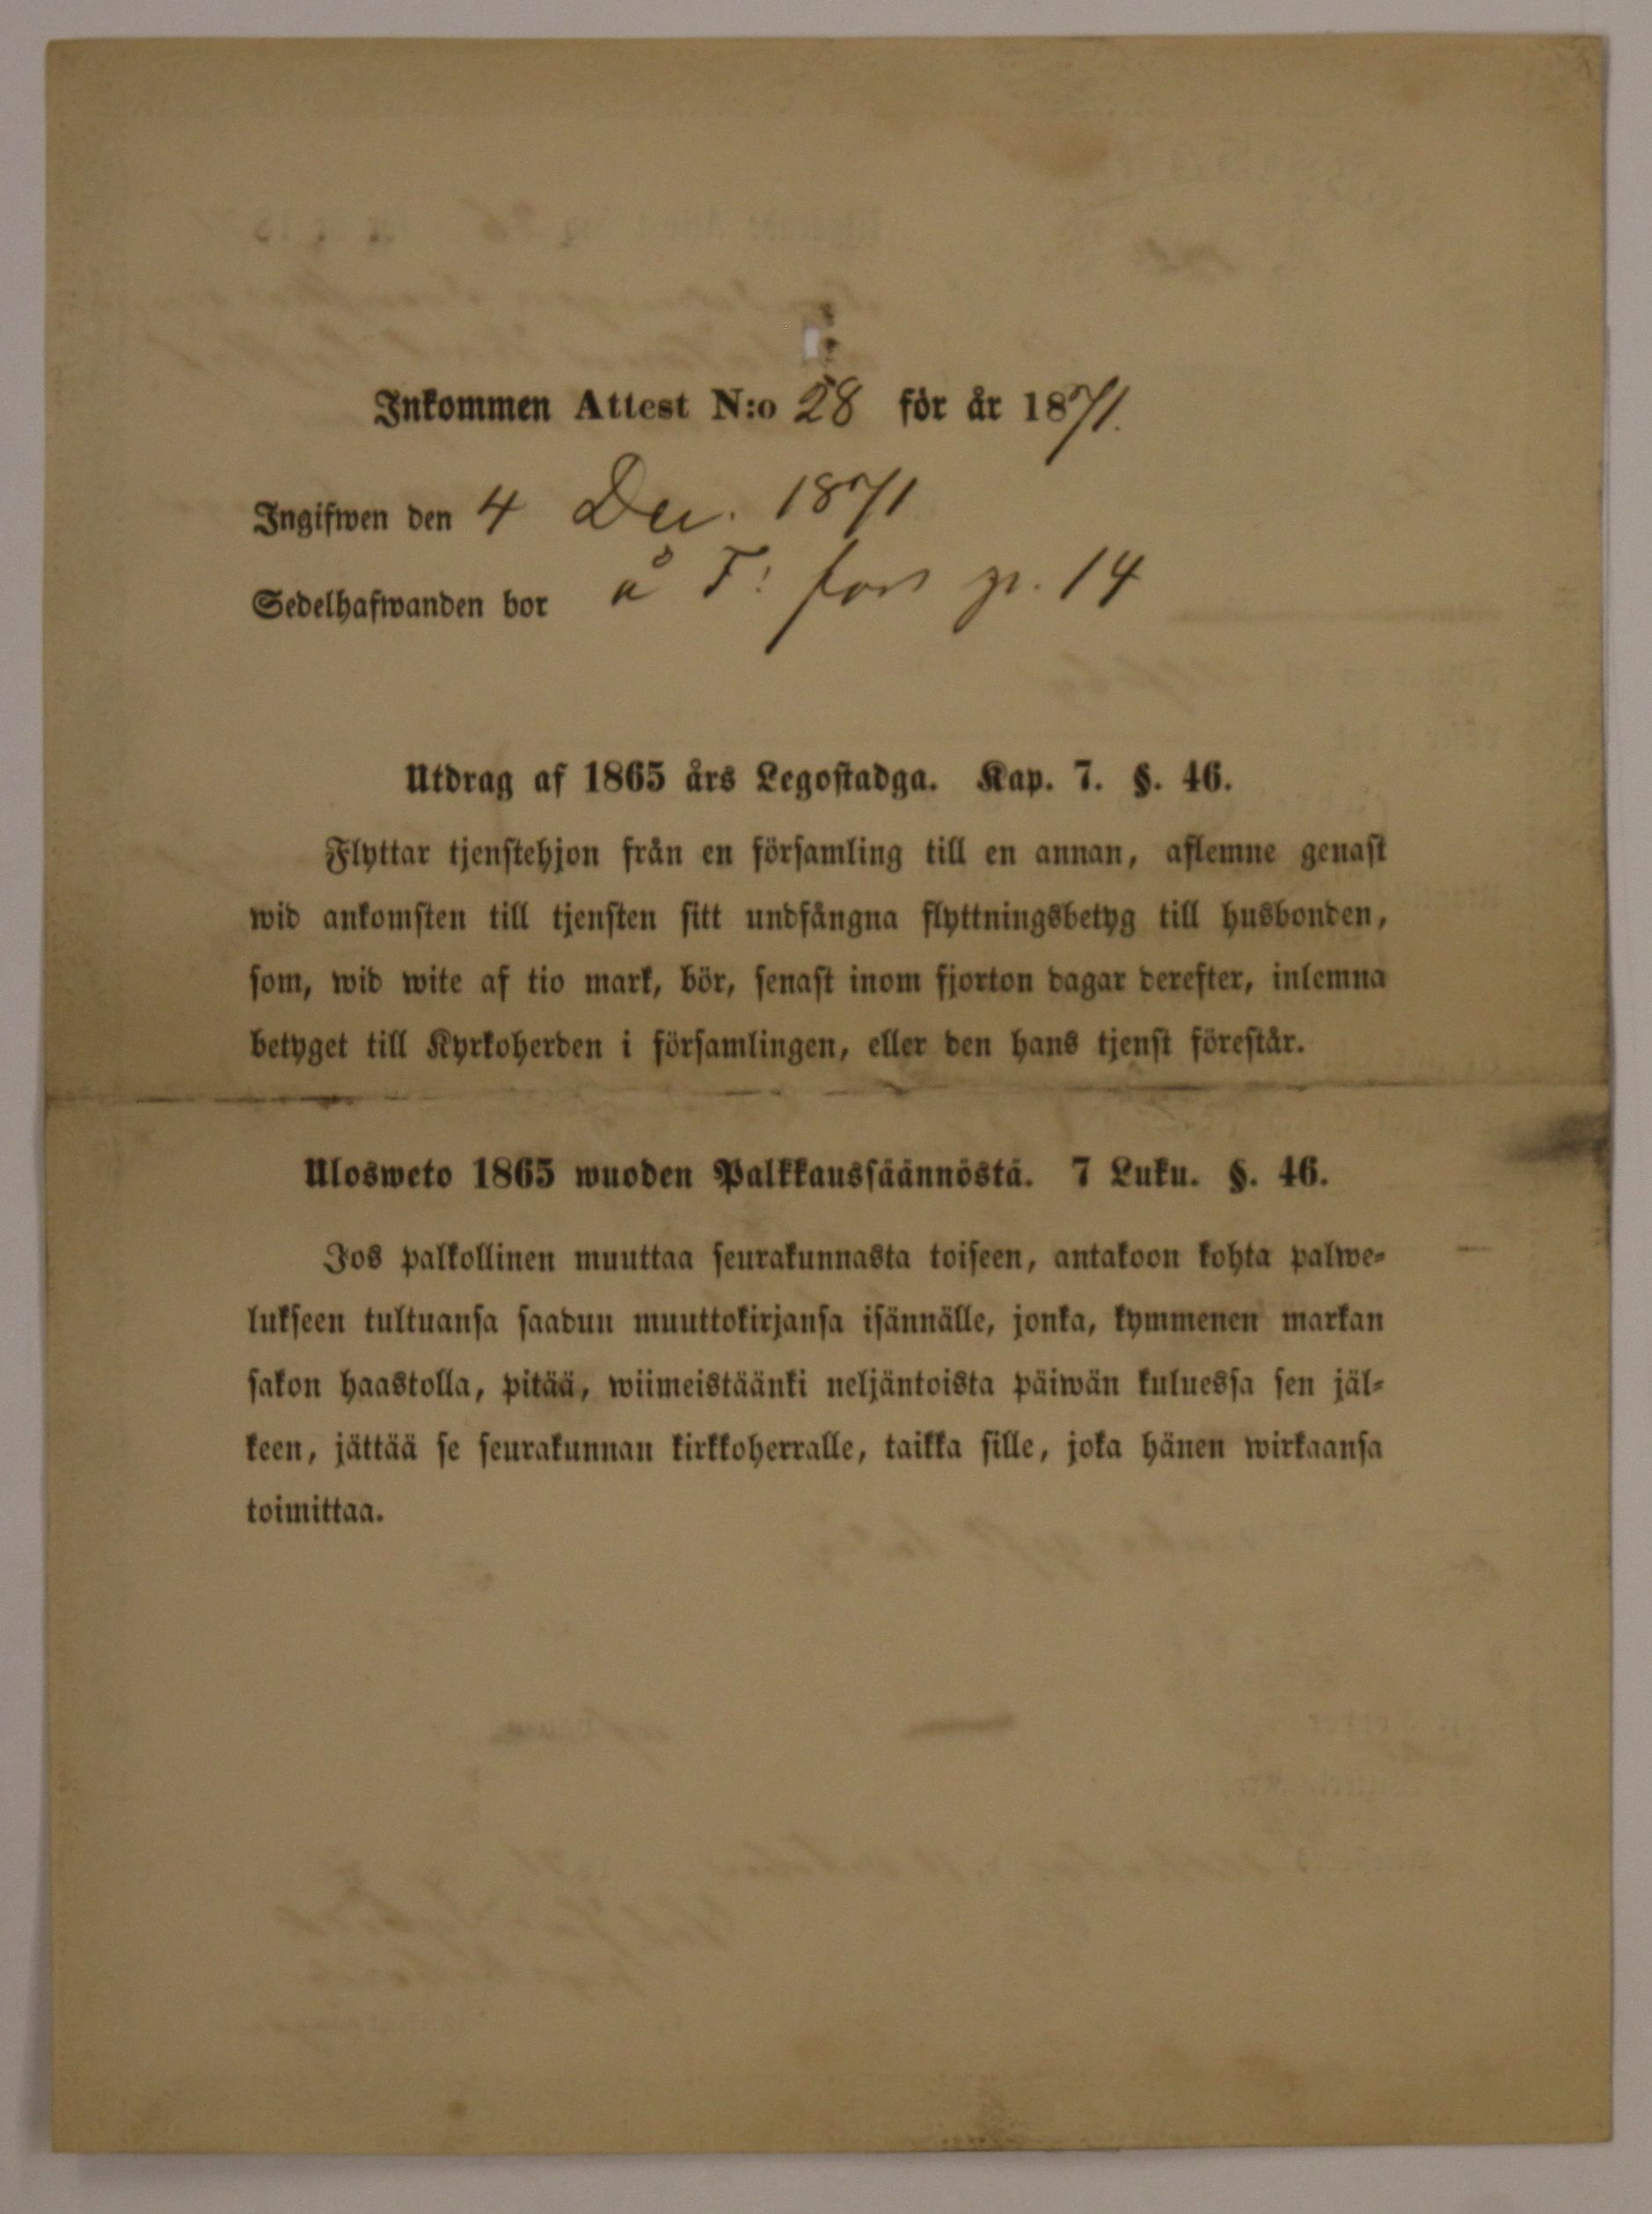 Inkommen Attest N:o 28 för år 1871.
Ingifwen den 4 Dec. 1871
Sedelhafwanden bor å F: fors p. 14
Utdrag af 1865 års Legostadga. Kap. 7. §. 46.
Flyttar tjenstehjon från en församling till en annan, aflemne genast
wid ankomsten till tjensten sitt undfångna flyttningsbetyg till husbonden,
som, wid wite af tio mark, bör, senast inom fjorton dagar derefter, inlemna
betyget till Kyrkoherden i församlingen, eller den hans tjenst förestår.
Ulosweto 1865 wuoden Palkkaussäännöstä. 7 Luku. §. 46.
Jos palkollinen muuttaa seurakunnasta toiseen, antakoon kohta palwe-
lukseen tultuansa saadun muuttokirjansa isännälle, jonka, kymmenen markan
sakon haastolla, pitää, wiimeistäänki neljäntoista päiwän kuluessa sen jäl-
keen, jättää se seurakunnan kirkkoherralle, taikka sille, joka hänen wirkaansa
toimittaa.